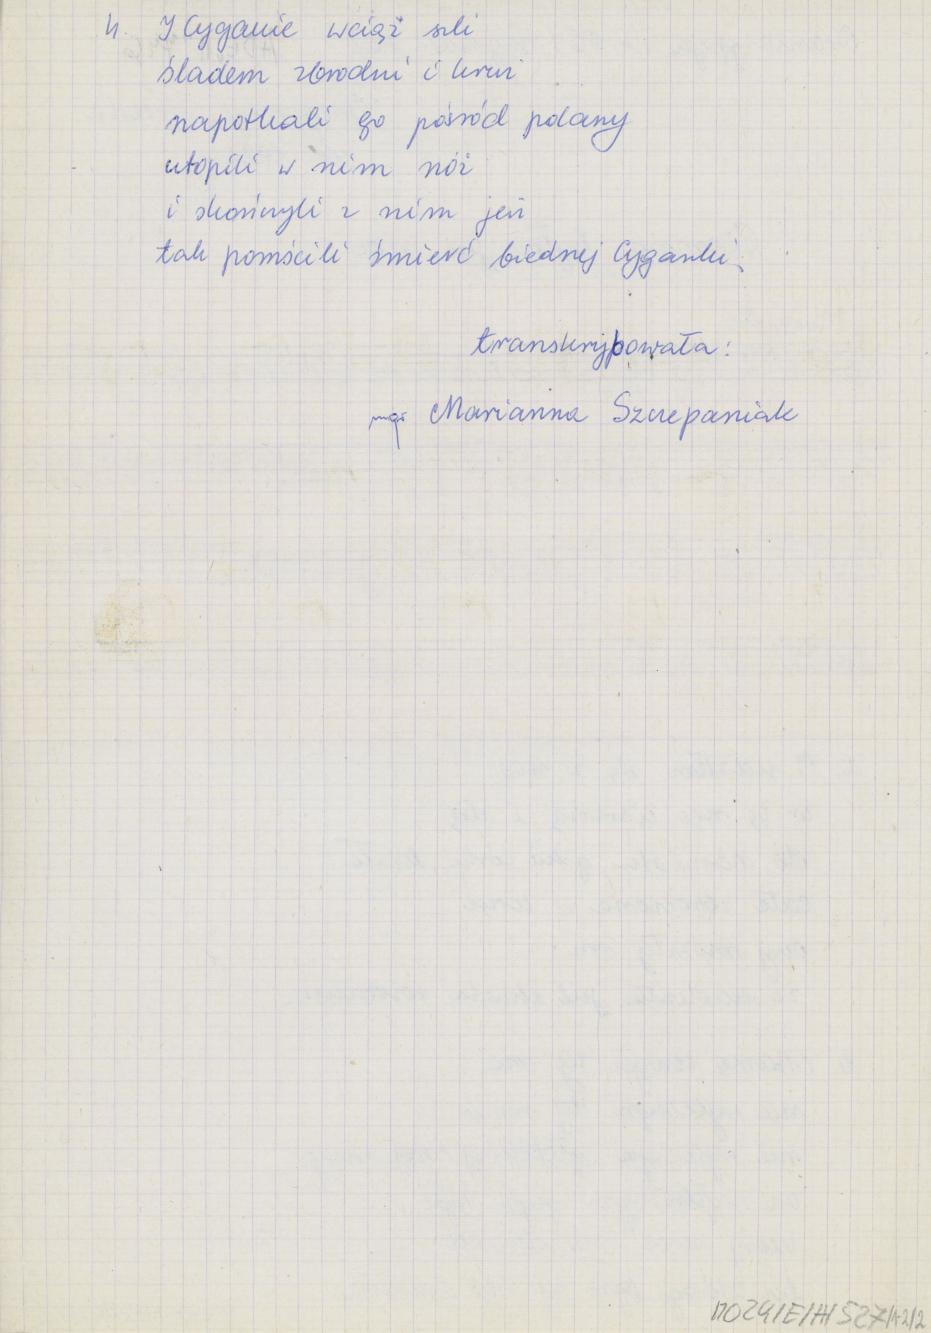 4. I Cyganie wciąż szli
śladem zbrodni i krwi
napotkali go pośród polany
utopili w nim nóż
i skończyli z nim już
tak pomścili śmierć biednej Cyganki.
transkrypowała:
mgr Marianna Szczepaniak